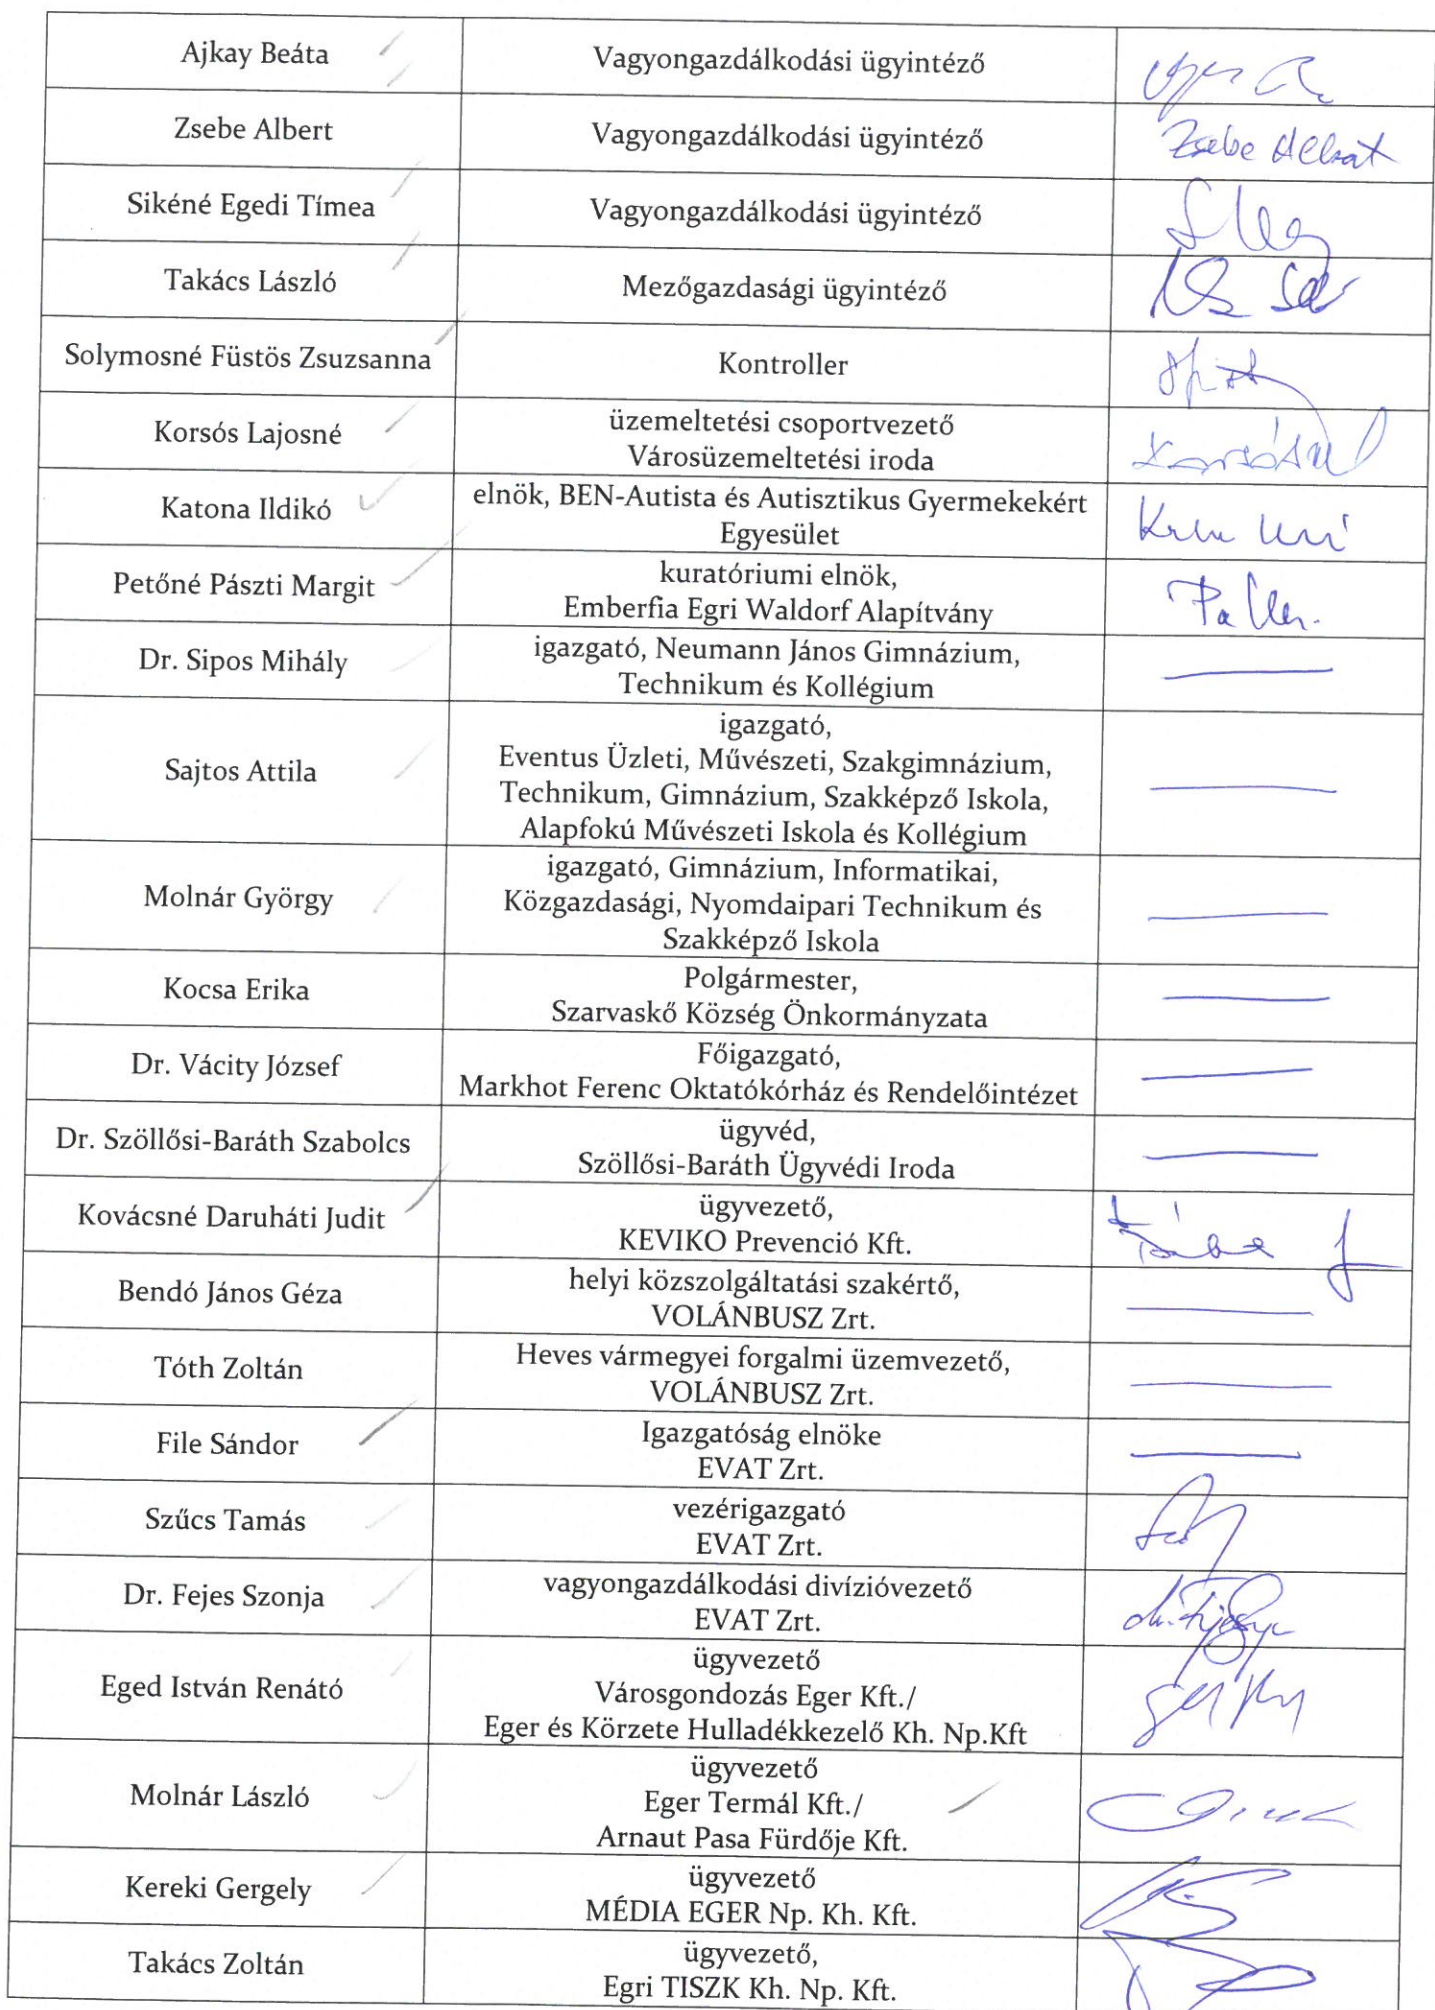 Ajkay Beáta
Vagyongazdálkodási ügyintéző
Zsebe Albert
Vagyongazdálkodási ügyintéző
Zsebe Albert
Sikéné Egedi Tímea
Vagyongazdálkodási ügyintéző
Takács László
Mezőgazdasági ügyintéző
Solymosné Füstös Zsuzsanna
Kontroller
Korsós Lajosné
üzemeltetési csoportvezető
Városüzemeltetési iroda
Katona Ildikó
elnök, BEN-Autista és Autisztikus Gyermekekért
Egyesület
Petőné Pászti Margit
kuratóriumi elnök,
Emberfia Egri Waldorf Alapítvány
Dr. Sipos Mihály
igazgató, Neumann János Gimnázium,
Technikum és Kollégium
Sajtos Attila
igazgató,
Eventus Üzleti, Művészeti, Szakgimnázium,
Technikum, Gimnázium, Szakképző Iskola,
Alapfokú Művészeti Iskola és Kollégium
Molnár György
igazgató, Gimnázium, Informatikai,
Közgazdasági, Nyomdaipari Technikum és
Szakképző Iskola
Kocsa Erika
Polgármester,
Szarvaskő Község Önkormányzata
Dr. Vácity József
Főigazgató,
Markhot Ferenc Oktatókórház és Rendelőintézet
Dr. Szöllősi-Baráth Szabolcs
ügyvéd,
Szöllősi-Baráth Ügyvédi Iroda
Kovácsné Daruháti Judit
ügyvezető,
KEVIKO Prevenció Kft.
Bendó János Géza
helyi közszolgáltatási szakértő,
VOLÁNBUSZ Zrt.
Tóth Zoltán
Heves vármegyei forgalmi üzemvezető,
VOLÁNBUSZ Zrt.
File Sándor
Igazgatóság elnöke
EVAT Zrt.
Szűcs Tamás
vezérigazgató
EVAT Zrt.
Dr. Fejes Szonja
vagyongazdálkodási divízióvezető
EVAT Zrt.
Eged István Renátó
ügyvezető
Városgondozás Eger Kft./
Eger és Körzete Hulladékkezelő Kh. Np.Kft
Molnár László
ügyvezető
Eger Termál Kft./
Arnaut Pasa Fürdője Kft.
Kereki Gergely
ügyvezető
MÉDIA EGER Np. Kh. Kft.
Takács Zoltán
ügyvezető,
Egri TISZK Kh. Np. Kft.